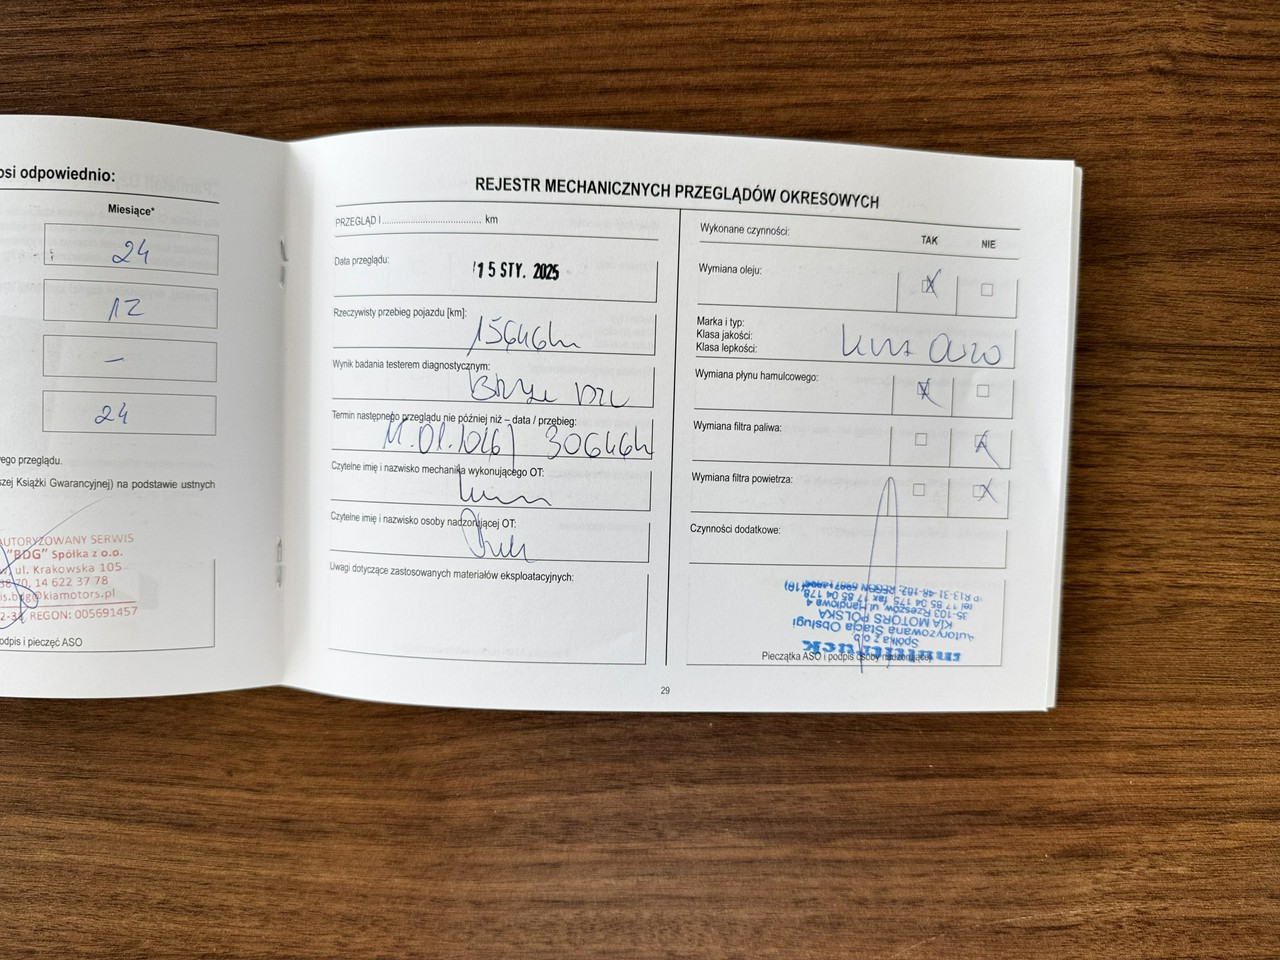 osi odpowiednio:
Miesiące*
24
12
–
24
ego przeglądu.
szej Książki Gwarancyjnej) na podstawie ustnych
AUTORYZOWANY SERWIS
"BDG" Spółka z o.o.
ul. Krakowska 105
70, 14 622 37 78
is.bdg@kiamotors.pl
REGON: 005691457
odpis i pieczęć ASO
REJESTR MECHANICZNYCH PRZEGLĄDÓW OKRESOWYCH
PRZEGLĄD I.................................... km
Data przeglądu:
15 STY. 2025
Rzeczywisty przebieg pojazdu [km]:
Wynik badania testerem diagnostycznym:
Termin następnego przeglądu nie później niż – data / przebieg:
Czytelne imię i nazwisko mechanika wykonującego OT:
Czytelne imię i nazwisko osoby nadzorującej OT:
Uwagi dotyczące zastosowanych materiałów eksploatacyjnych:
Wykonane czynności:
TAK
NIE
Wymiana oleju:
Marka i typ:
Klasa jakości:
Klasa lepkości:
Wymiana płynu hamulcowego:
Wymiana filtra paliwa:
Wymiana filtra powietrza:
Czynności dodatkowe:
Spółka z o.o.
Autoryzowana Stacja Obsługi
KIA MOTORS POLSKA
35-103 Rzeszów, ul. Handlowa 4
tel. 17 85 04 175, fax 17 85 04 178
Pieczątka ASO i podpis osoby nadzorującej
29